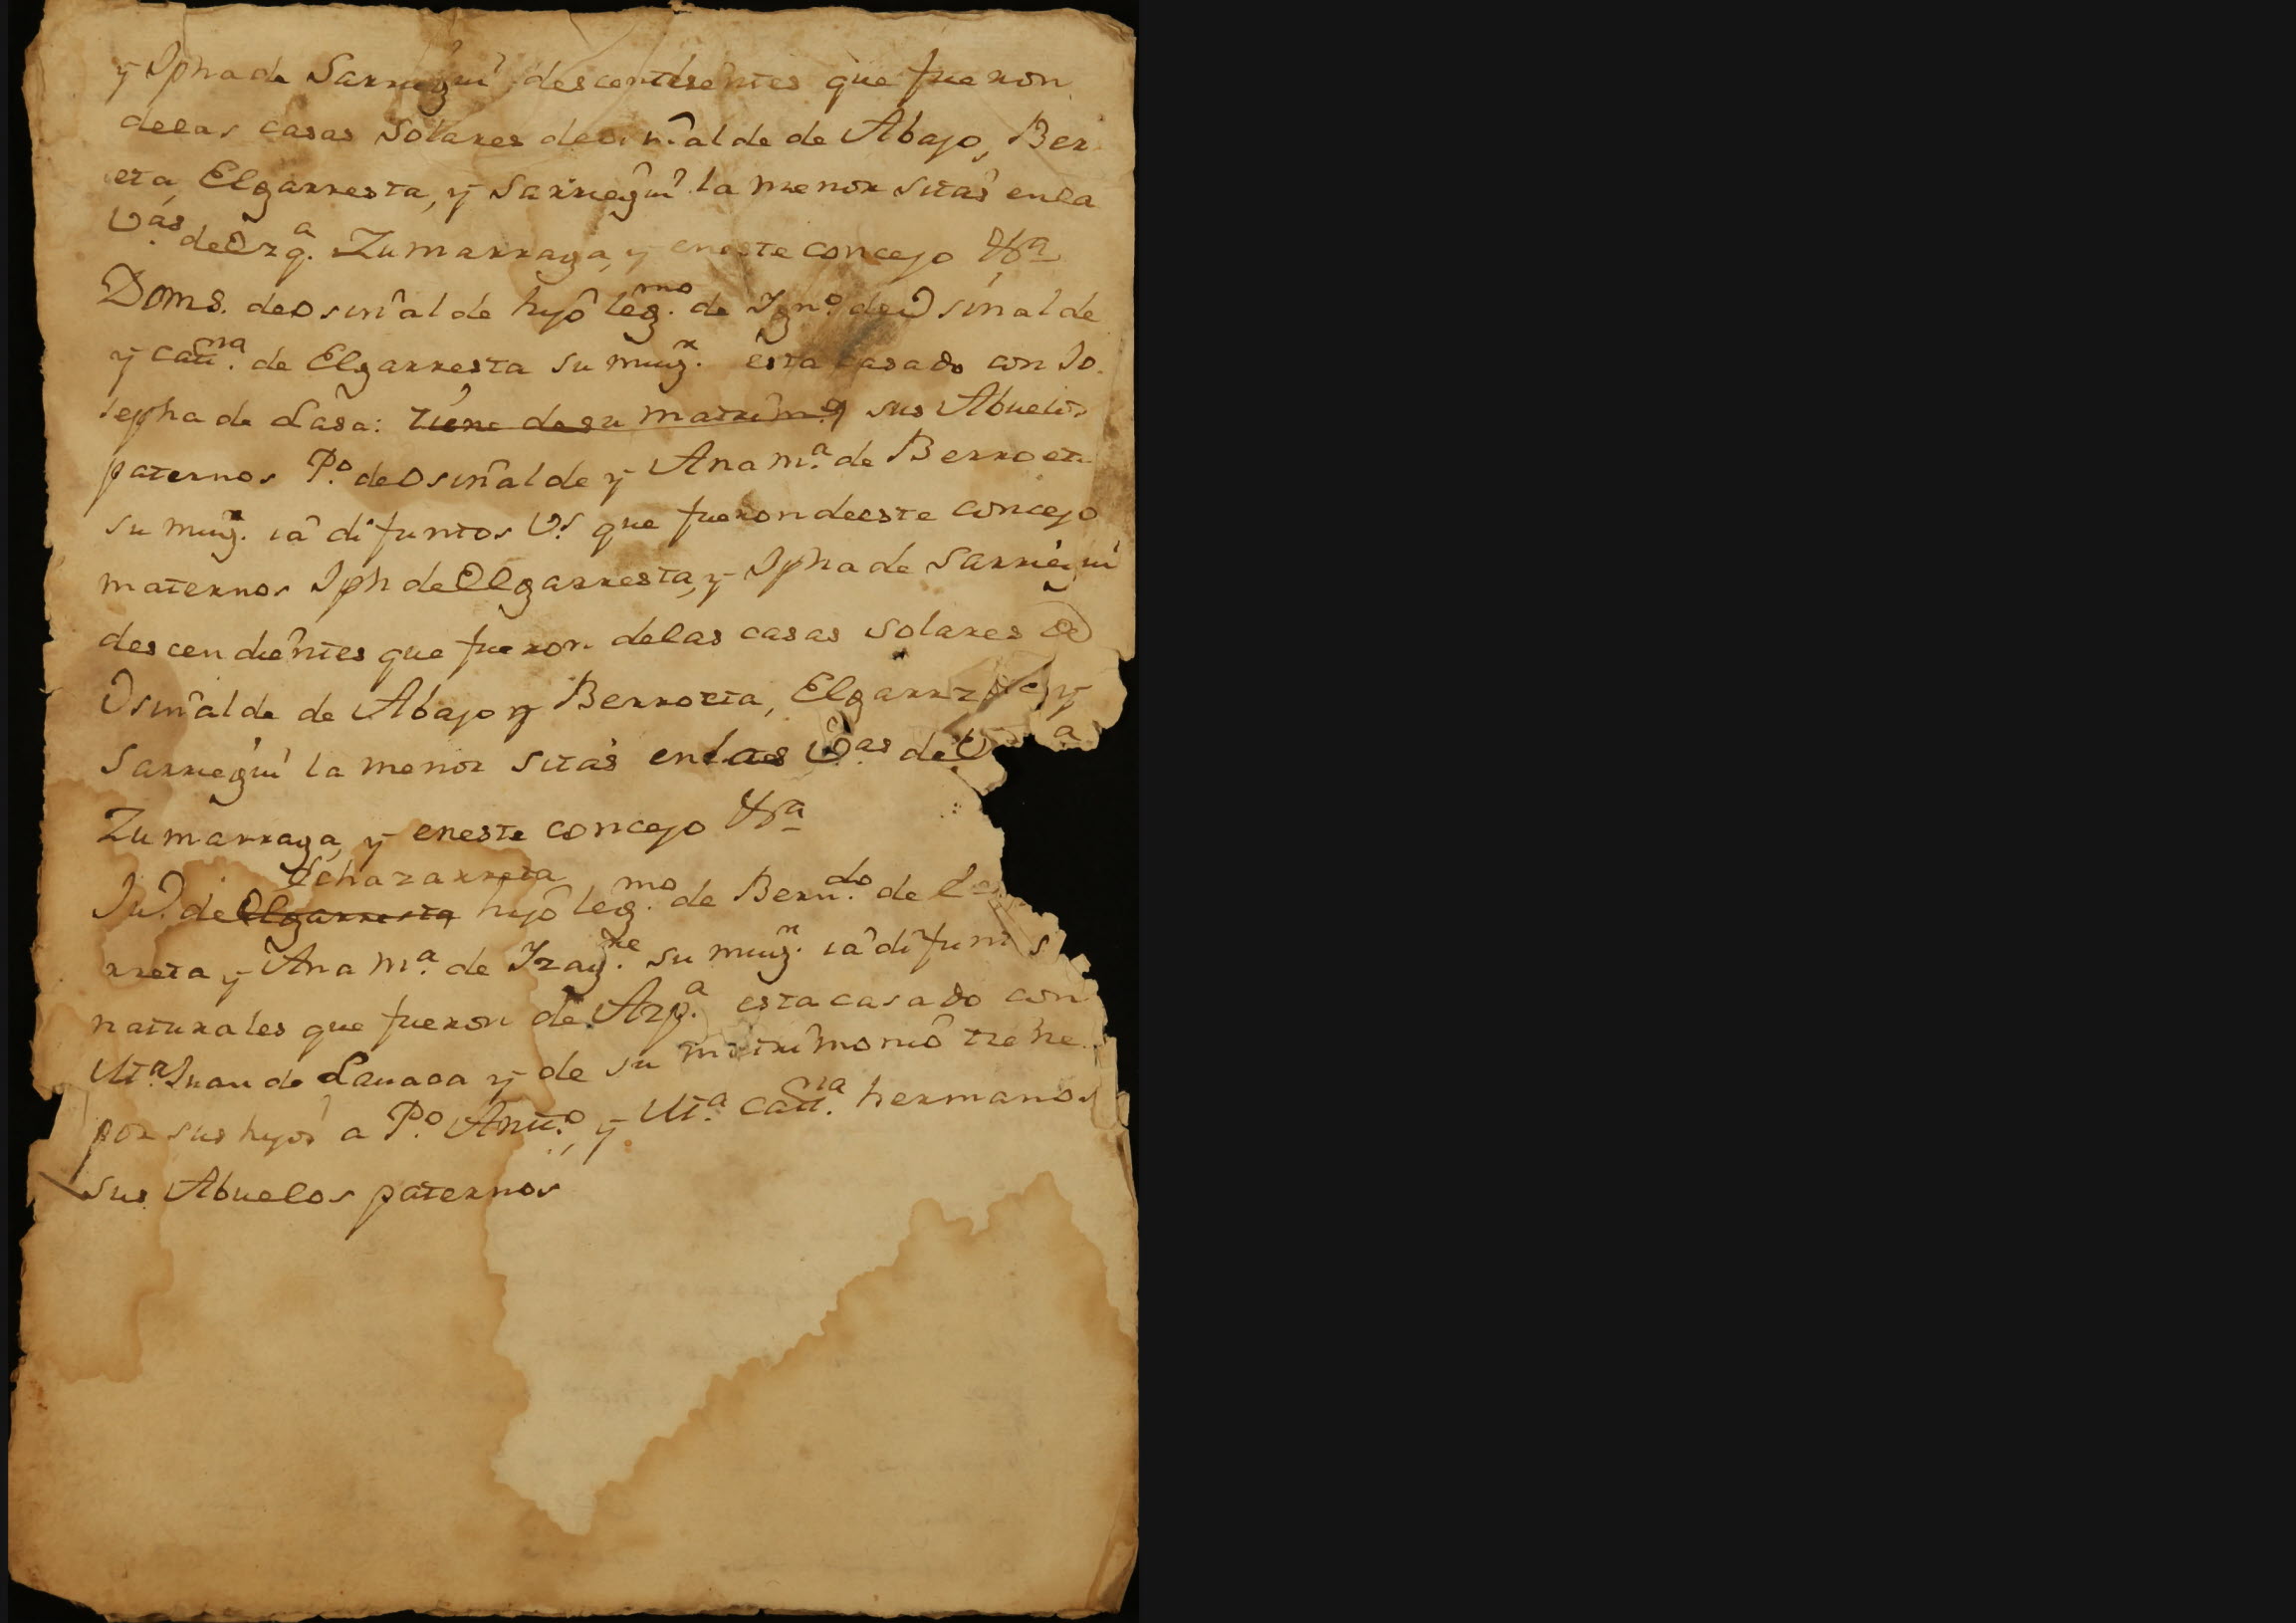 y Jpha de Sarriegui descendientes que fueron
delas casas Solares de osiñalde de Abajo, Ber
eta, Elgarresta, y Sarriegui la menor sitas en la
V.as de Azg.a Zumarraga, y eneste concejo &ra
Doms. de Osiñalde hijo leg.mo de Ygn.o de Osinalde
y Catt.na de Elgarresta su mug.r esta casado con Jo
sepha de Lasa: tiene de su matrim.o sus Abuelos
paternos P.o de Osiñalde y Ana m.a de Berroeta
su mug.r ia difuntos V.s que fueron deeste concejo
maternos Jph de Elgarresta, y Jpha de Sarriegui
descendientes que fueron delas casas solares de
Osiñalde de Abajo y Berroeta, Elgarrz y
Sarriegui la menor sitas en las V.as de
Zumarraga, y eneste concejo &ra
Echazarreta
Ju.o de Elgarresta hijo leg.mo de Bern.do de
rreta y Ana M.a de Yzag.re su mug.r ia difuntos
naturales que fueron de Azp.a esta casado con
M.a Juan de Lauaoa y de su matrimonio tiene
por sus hijos a P.o Antt.o, y M.a Catt.na hermanos
sus Abuelos paternos